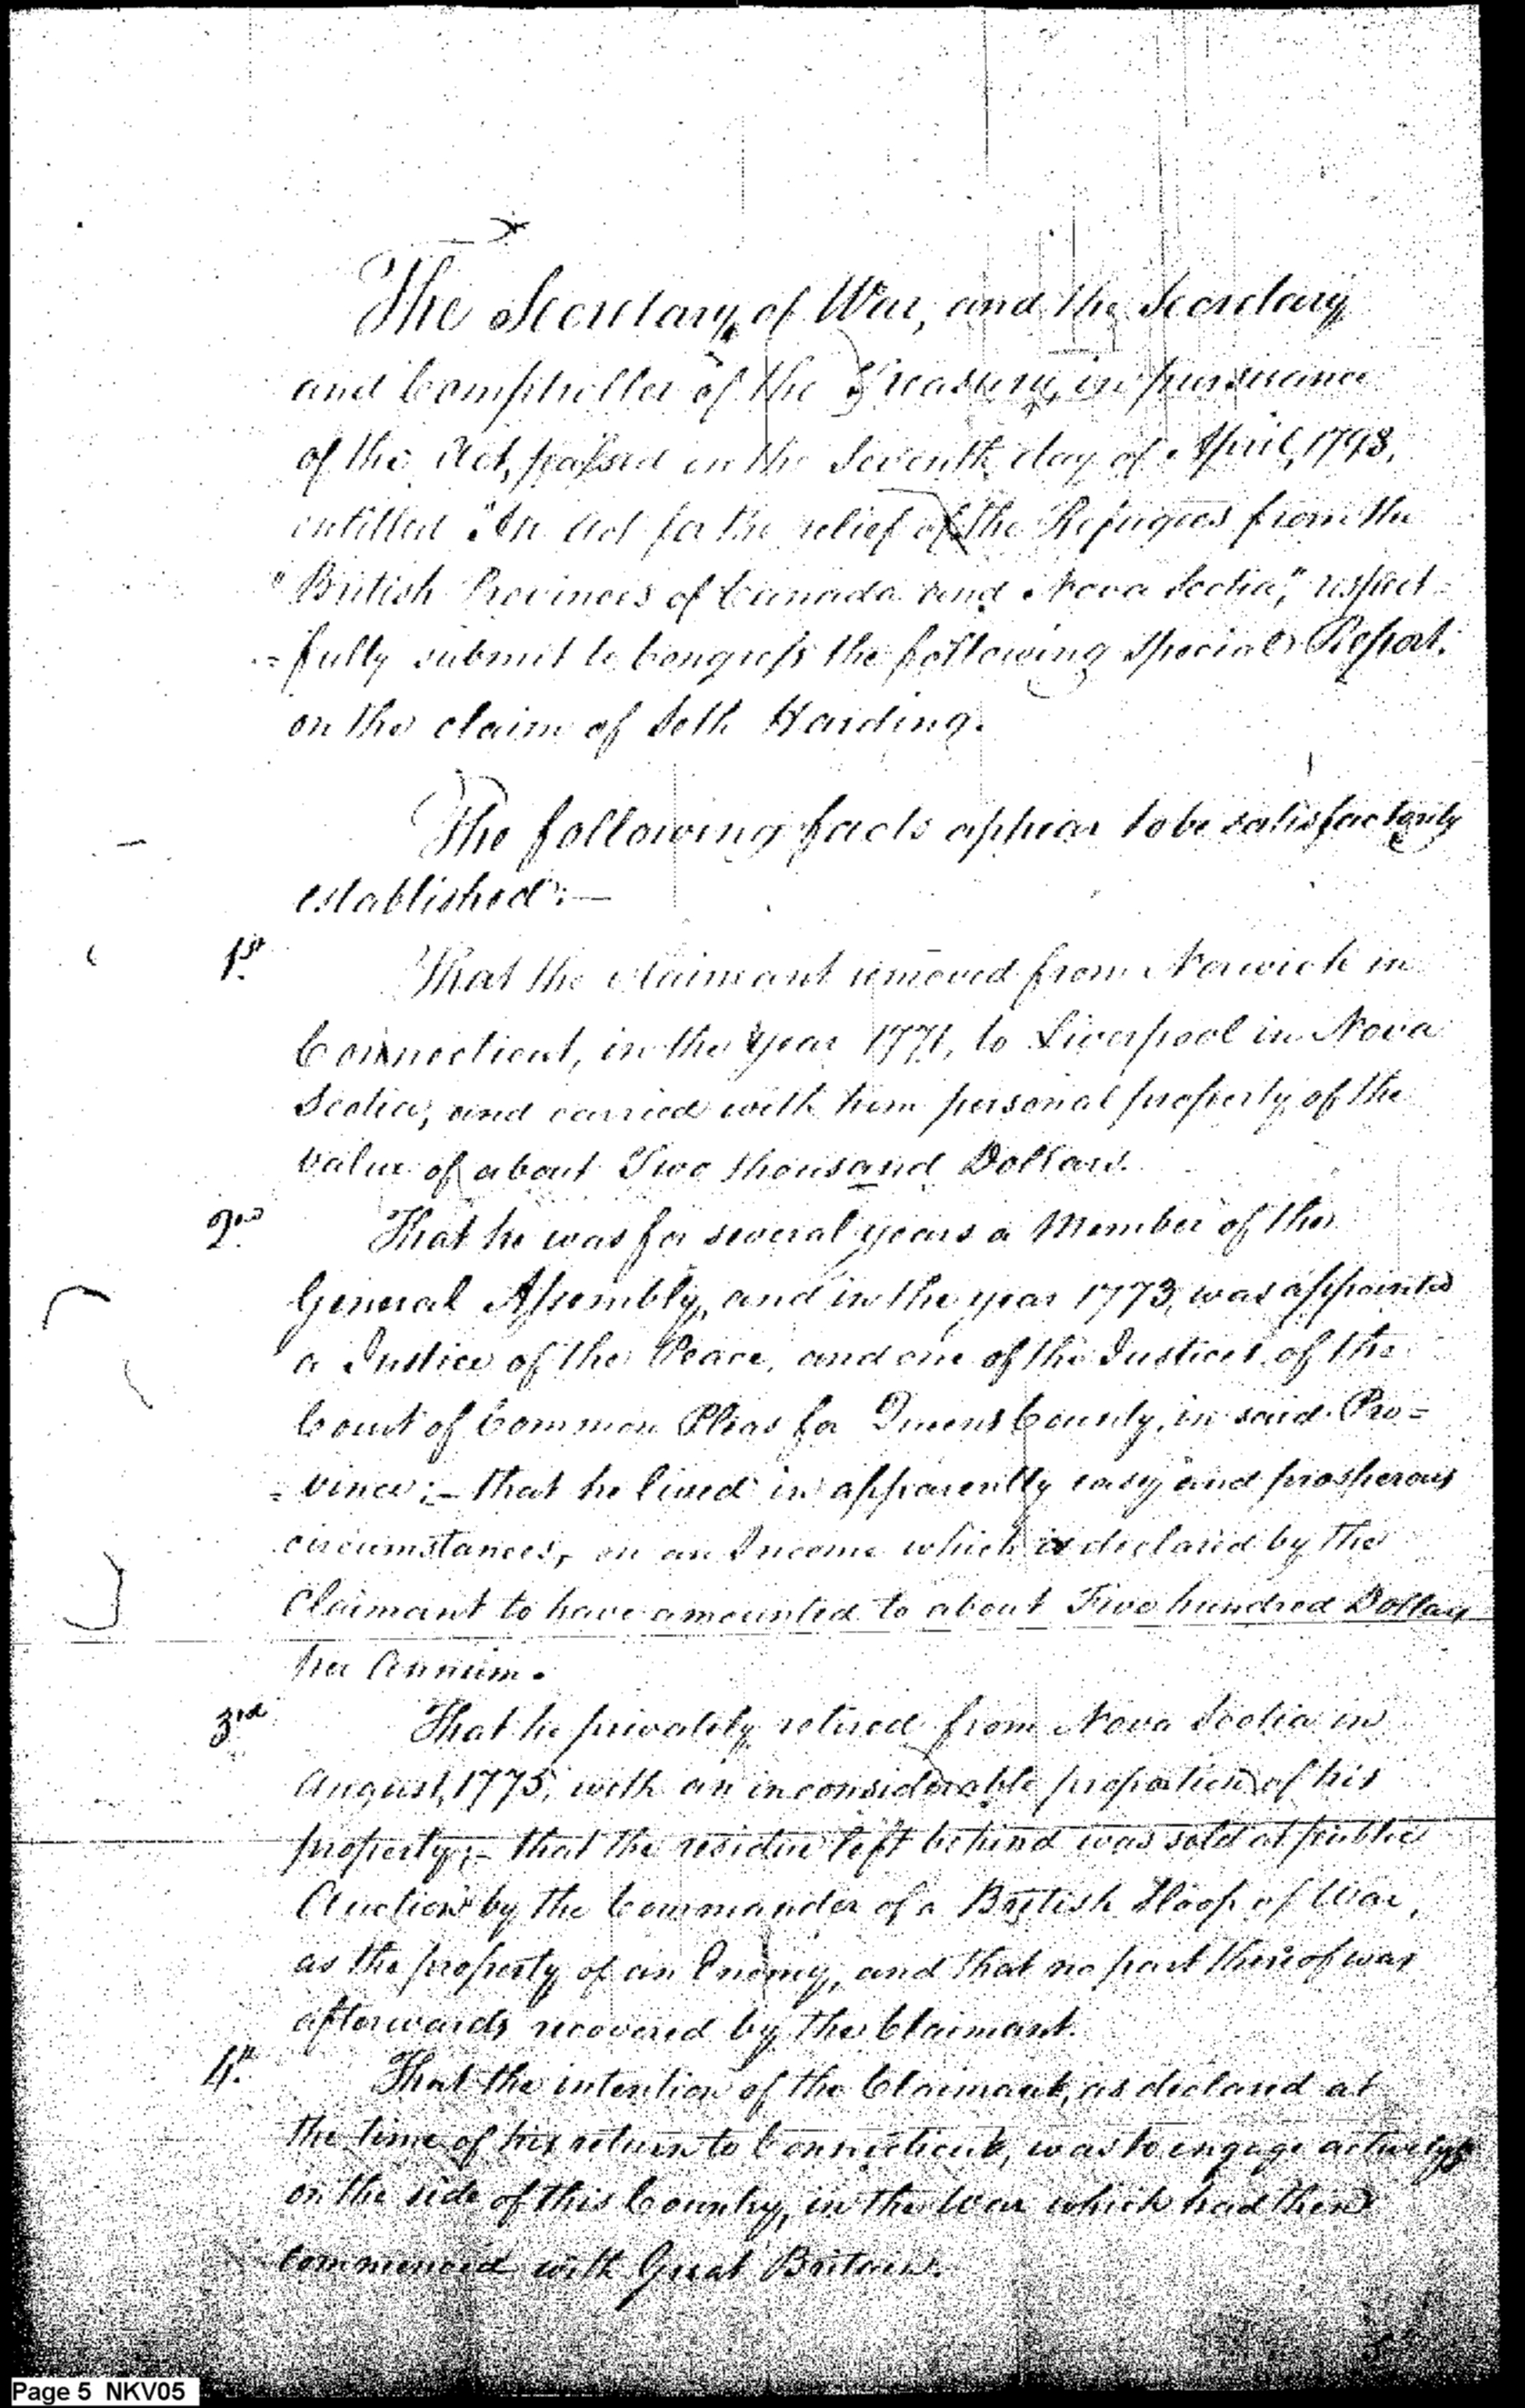 The Secretary of War, and the Secretary
and Comptroller of the Treasury, in pursuance
of the Act, passed on the Seventh day of April, 1798,
entitled "An Act for the relief of the Refugees from the
"British Provinces of Canada and Nova Scotia," respect=
=fully submit to Congress the following Special Report.
on the claim of Seth Harding.
The following facts appear to be satisfactorily
established:—
1st. That the Claimant removed from Norwich in
Connecticut, in the Year 1771, to Liverpool in Nova
Scotia, and carried with him personal property of the
value of about Two thousand Dollars.
2nd. That he was for several years a Member of the
General Assembly, and in the year 1773, was appointed
a Justice of the Peace, and one of the Justices of the
Court of Common Pleas for Queens County, in said Pro=
=vince;— that he lived in apparently easy and prosperous
circumstances, on an Income which is declared by the
Claimant to have amounted to about Five hundred Dollars
per Annum.
3rd. That he privately retired from Nova Scotia in
August, 1775, with an inconsiderable proportion of his
property;— that the residue left behind was sold at public
Auction by the Commander of a British Sloop of War,
as the property of an Enemy, and that no part thereof was
afterwards recovered by the Claimant.
4th. That the intention of the Claimant, as declared at
the time of his return to Connecticut, was to engage actively
on the side of this Country, in the War which had then
commenced with Great Britain.
5
Page 5 NKV05